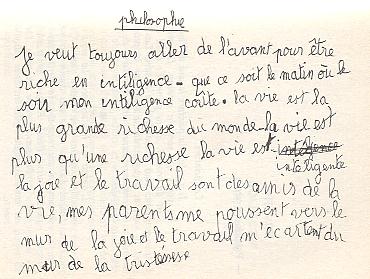 philosophie
je veut toujours aller de l'avant pour être
riche en intiligence - que ce soit le matin où le
soir mon intiligence coûte. la vie est la
plus grande richesse du monde - la vie est
plus qu'une richesse la vie est
inteligente
la joie et le travail sont des amis de la
vie, mes parents me poussent vers le
mur de la joie et le travail m'écartent du
mur de la tristesse